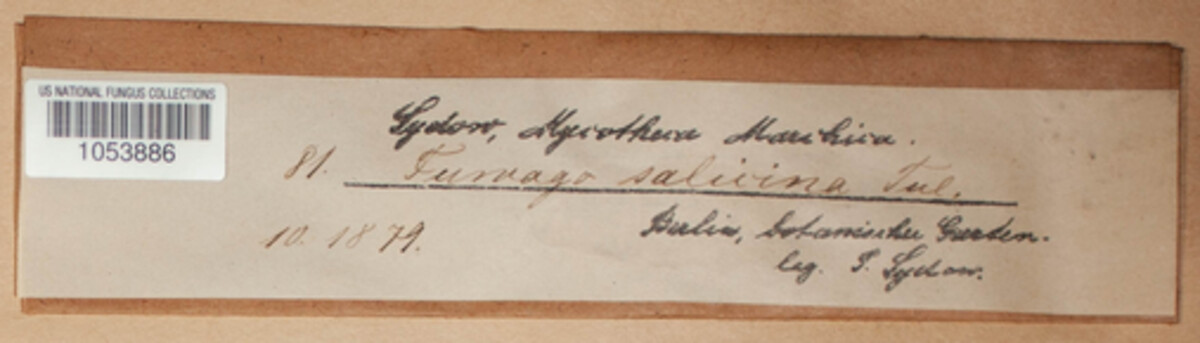 US NATIONAL FUNGUS COLLECTIONS
1053886
Sydow, Mycotheca Marchica.
81. Fumago salicina Tul.
10. 1879.
Berlin, botanischer Garten.
leg. P. Sydow.